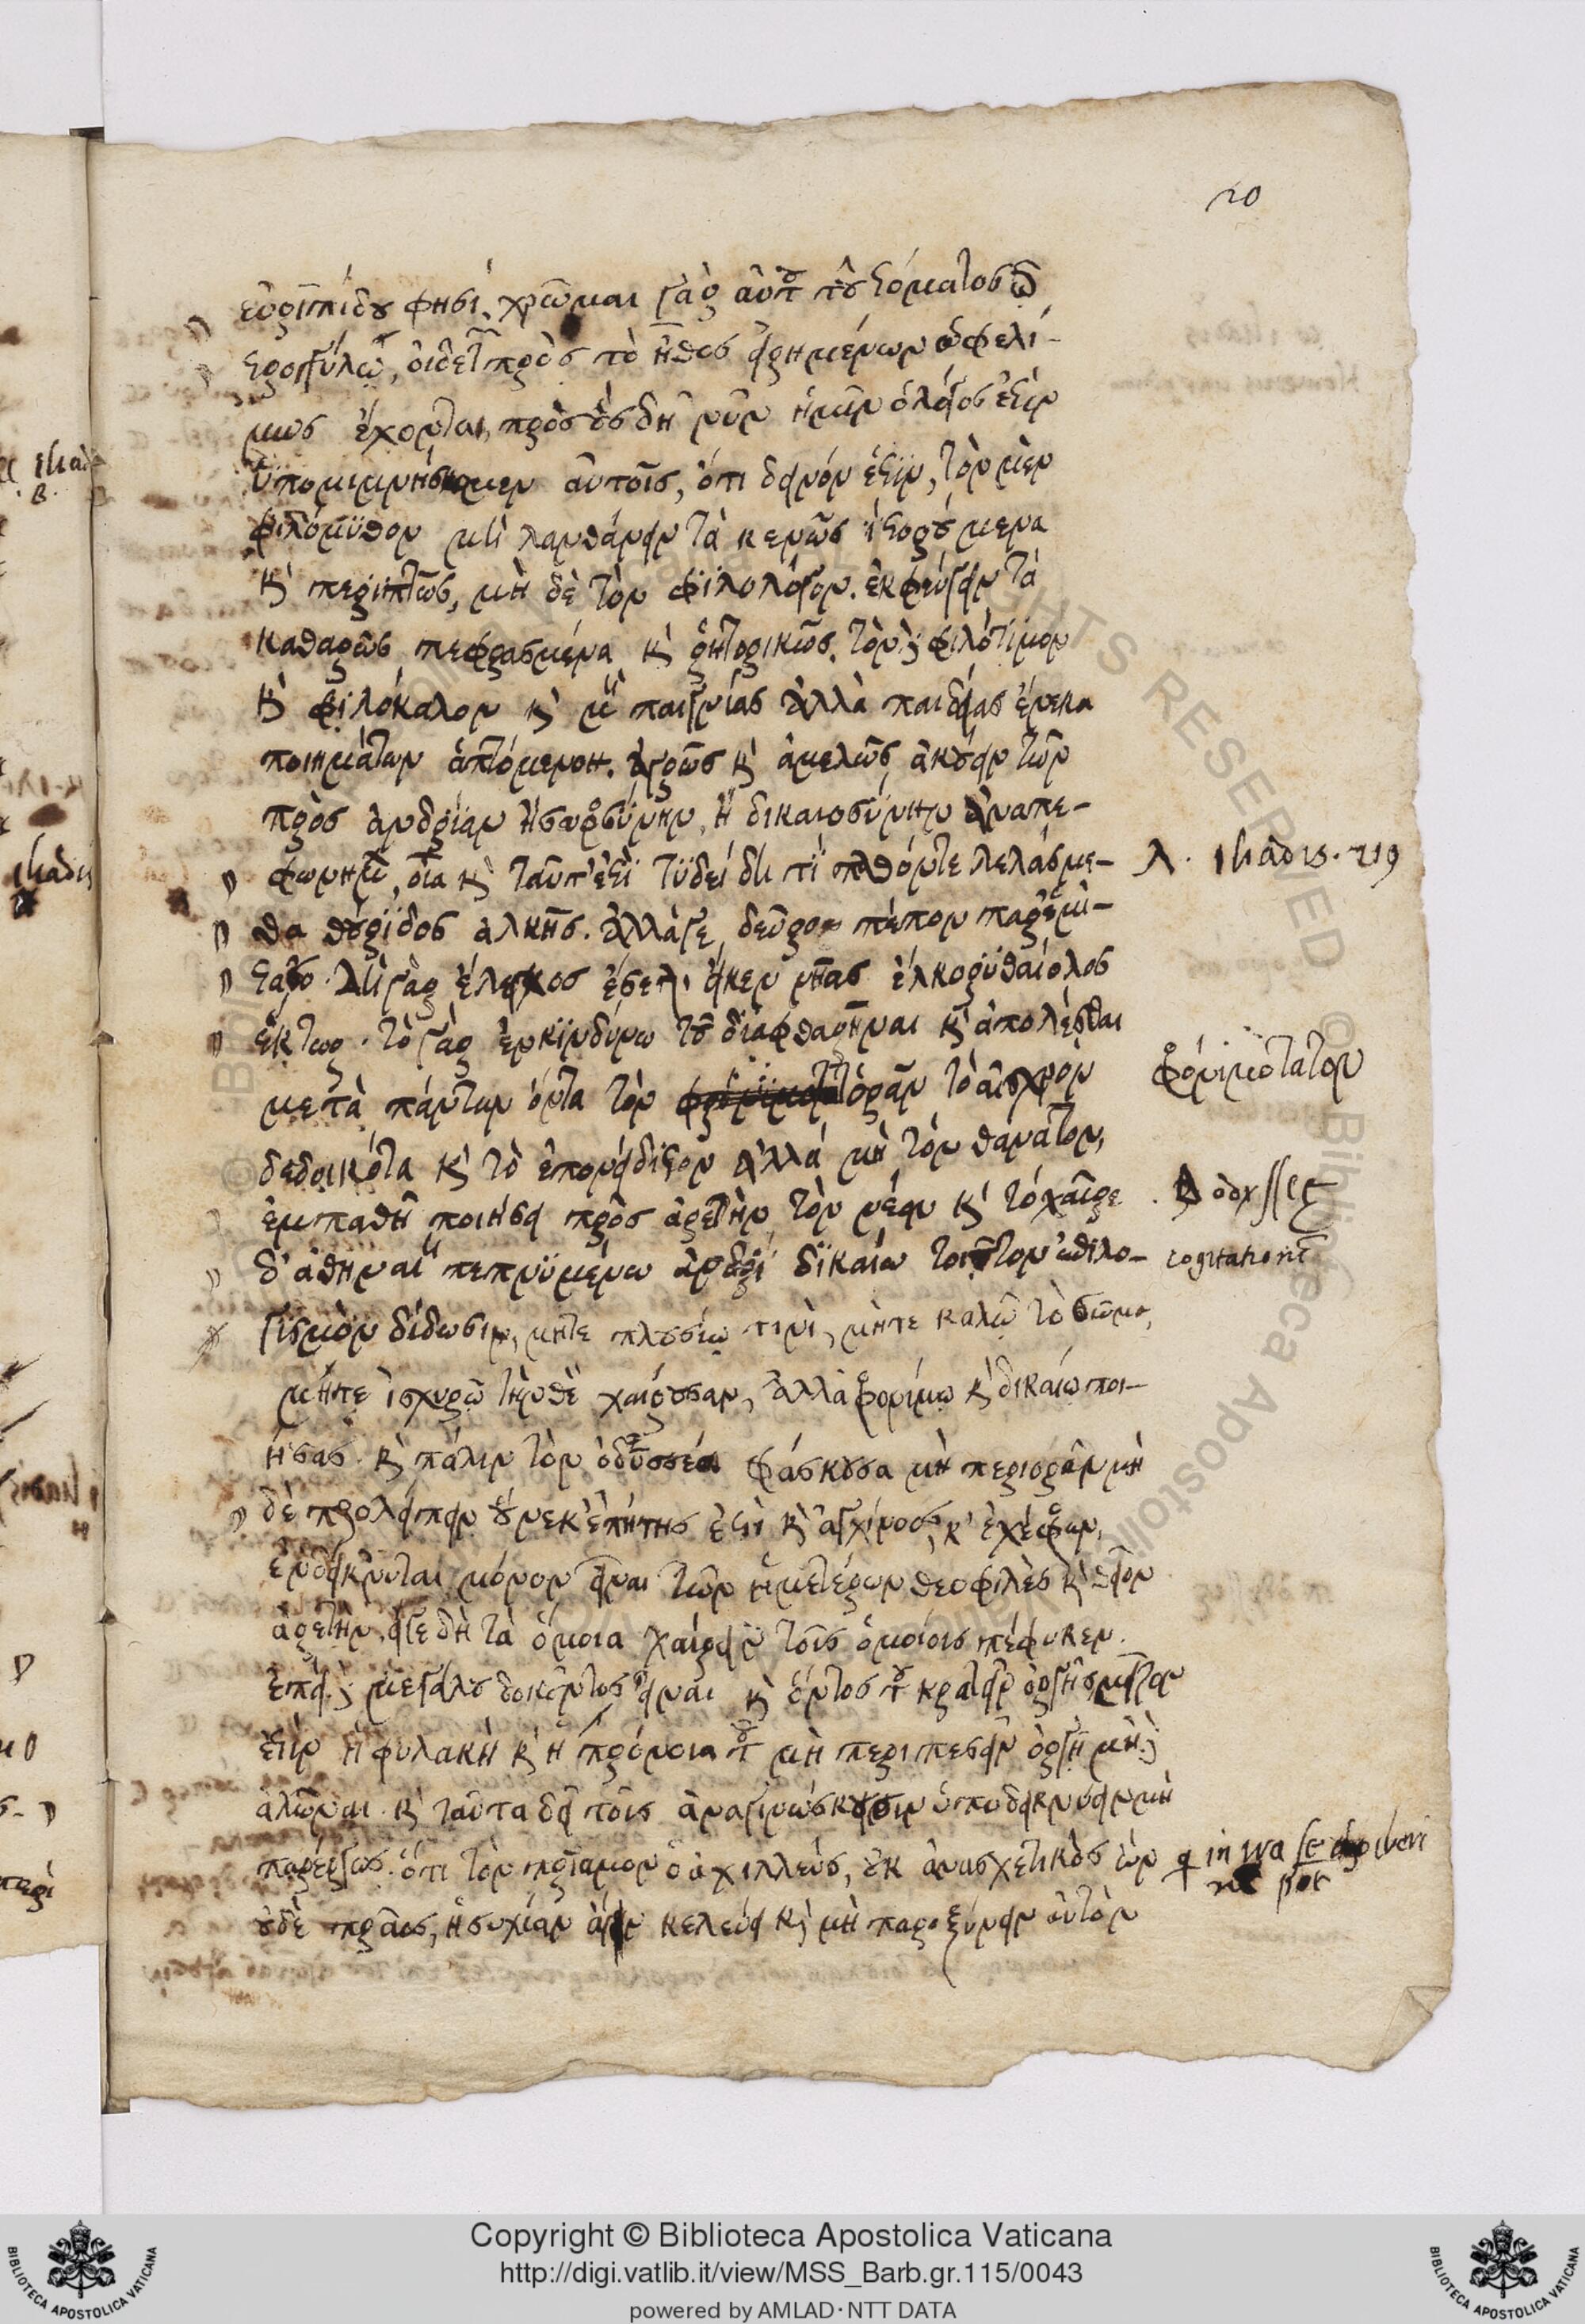 20
εὐριπίδου φησί. χρῶμαι γὰρ αὐτοῦ τοῦ στόματος τῷ
στρογγύλῳ, οἱ δὲ τῶν πρὸς τὸ ἦθος εἰρημένων ὠφελί-
μως ἔχονται, πρὸς οὓς δὴ νῦν ἡμῖν ὁ λόγος ἐστὶν
ὑπομιμνήσκωμεν αὐτοῖς, ὅτι δεινόν ἐστιν, τὸν μὲν
φιλόμυθον μὴ λανθάνειν τὰ κενῶς ἱστορούμενα
καὶ περιττῶς, μὴ δὲ τὸν φιλολόγον. ἐκφεύγειν τὰ
καθαρῶς πεφρασμένα καὶ ῥητορικῶς. τὸν δὲ φιλότιμον
καὶ φιλόκαλον καὶ μὴ παιγνίας ἀλλὰ παιδείας ἕνεκα
ποιημάτων ἁπτόμενον. ἀργῶς καὶ ἀμελῶς ἀκούειν τῶν
πρὸς ἀνδρίαν ἢ σωφροσύνην, ἢ δικαιοσύνην ἀναπε-
φωνημένων, οἷα καὶ ταῦτ' ἐστὶ τυδείδη τί παθόντε λελάσμε-
θα θούριδος ἀλκῆς. ἀλλ' ἄγε δεῦρο πέπον παρ' ἔμ' ἵ-
στασο. δὴ γὰρ ἔλεγχος ἔσεται εἴκεν νῆας ἕλῃ κορυθαίολος
ἕκτωρ. τὸ γὰρ ἐν κινδύνῳ τοῦ διαφθαρῆναι καὶ ἀπολέσθαι
μετὰ πάντων ὄντα τὸν ὁρᾶν τὸ αἰσχρὸν
δεδοικότα καὶ τὸ ἐπονείδιστον ἀλλὰ μὴ τὸν θάνατον,
ἐμπαθῆ ποιήσει πρὸς ἀρετὴν τὸν νέον καὶ τὸ χαῖρε
δ' ἀθηναίη πεπνυμένῳ ἀνδρὶ δικαίῳ τοιοῦτον ἐπιλο-
γισμὸν δίδωσιν, μήτε πλουσίῳ τινὶ, μήτε καλῷ τὸ σῶμα,
μήτε ἰσχυρῷ τὴν θεὸν χαίρουσαν, ἀλλὰ φρονίμῳ καὶ δικαίῳ ποι-
ήσας. καὶ πάλιν τὸν ὀδυσσέα φάσκουσα μὴ περιορᾶν μὴ
δὲ προλείπειν οὕνεκ' ἐπητής ἐστι καὶ ἀγχίνοος, καὶ ἐχέφρων,
ἐνδείκνυται μόνον εἶναι τῶν ἡμετέρων θεοφιλὲς καὶ θεῖον
ἀρετὴν, εἴγε δὴ τὰ ὅμοια χαίρειν τοῖς ὁμοίοις πέφυκεν.
ἐπεὶ δὲ μεγάλου δοκοῦντος εἶναι καὶ ὄντος τοῦ κρατεῖν ὀργῆς μεῖζον
ἐστὶν ἡ φυλακὴ καὶ ἡ πρόνοια τοῦ μὴ περιπεσεῖν ὀργῇ μὴ δὲ
ἁλῶναι. καὶ ταῦτα δεῖ τοῖς ἀναγινώσκουσιν ὑποδεικνύειν μὴ
παρέργως. ὅτι τὸν πρίαμον ὁ ἀχιλλεύς, οὐκ ἀνασχετικὸς ὢν
οὐδὲ πρᾶος, ἡσυχίαν ἄγειν κελεύει καὶ μὴ παροξύνειν αὐτὸν
λ. Iliadis. 219
φρονιμώτατον
odyssee
cogitationem
in ira se
Copyright © Biblioteca Apostolica Vaticana
http://digi.vatlib.it/view/MSS_Barb.gr.115/0043
powered by AMLAD·NTT DATA